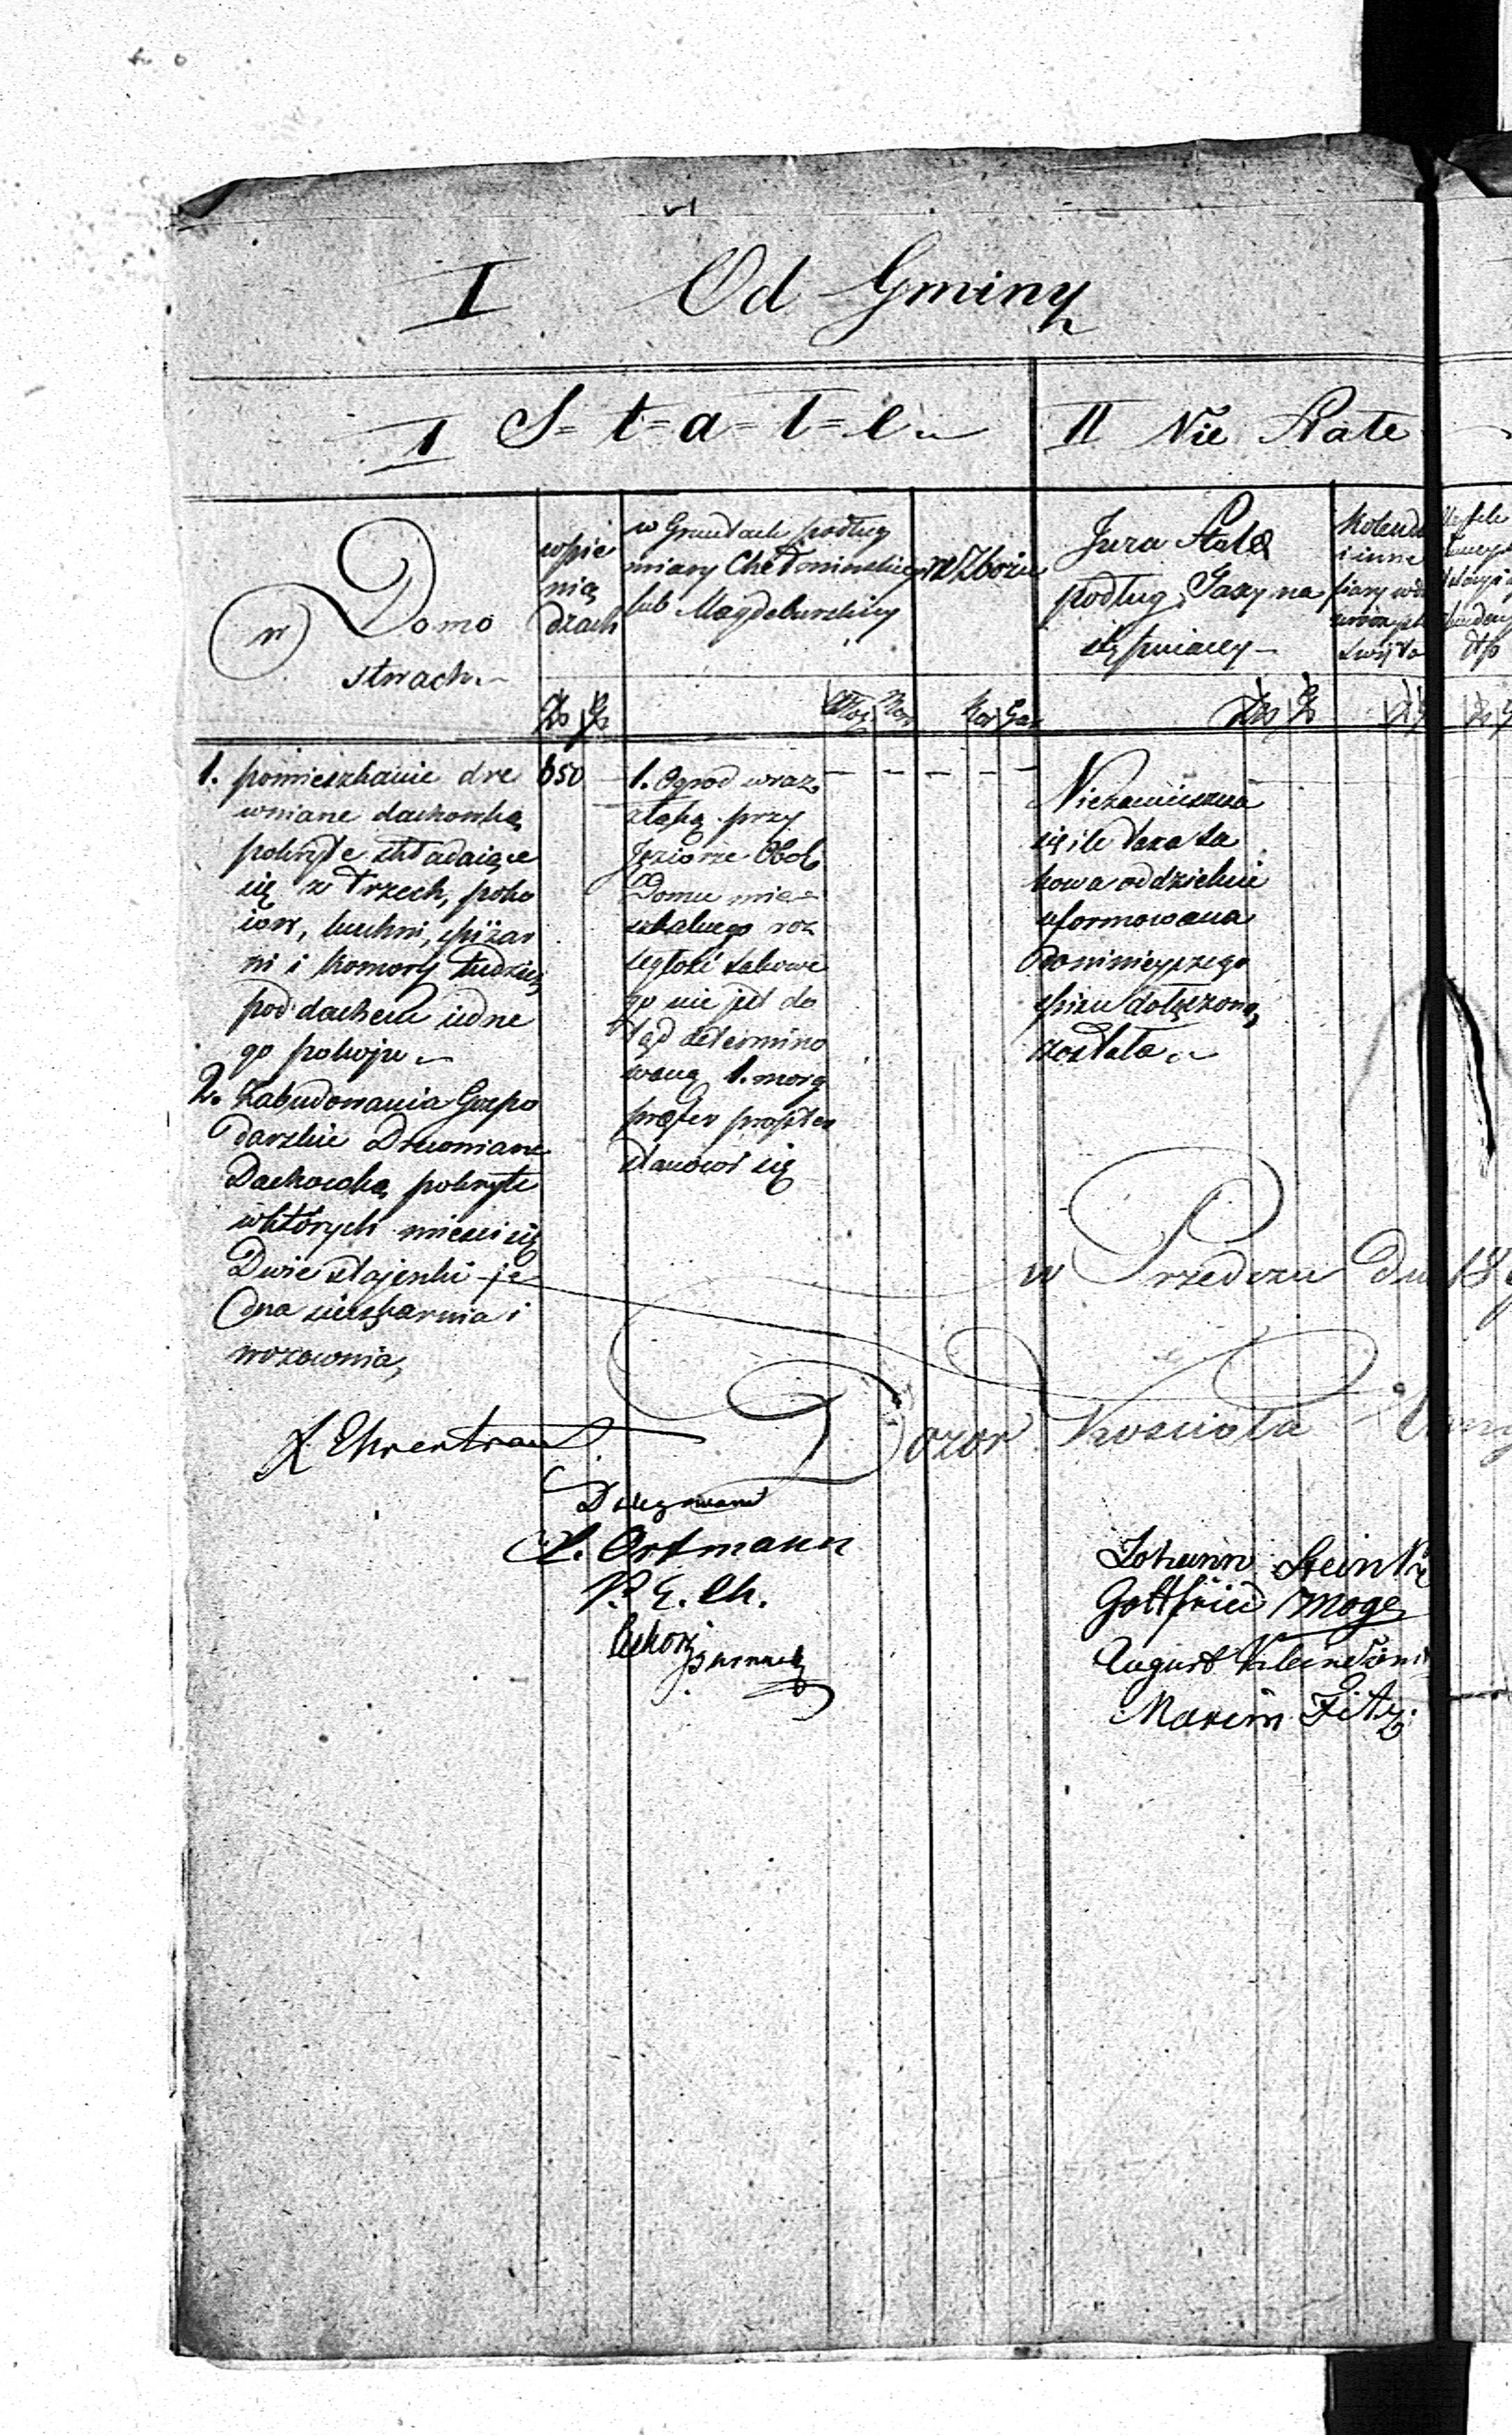 I Od Gminy
I S=t=a=ł=e
II Nie Stałe
w Domo
stwach
w pie
nią
dzach
w Gruntach podług
miary Chełminskiey
lub Magdeburskiey
w Zbożu
Jura Stolæ
podług Taxy na
stępuiącey
Kolenda
i inne
Zł Gr
Kor Gar
1. pomieszkanie dre
wniane dachowką
pokryte składaiące
się z trzech, poko
iow, kuchni, spiżar
ni i komory tudzież
pod dachem iedne
go pokoju
2. Zabudowania Gospo
darskie Drewniane
Dachowką pokryte
w których mieści się
Dwie stajenki je
dna sieczkarnia i
wozownia,
650
1. Ogrod wraz
z łąką przy
Jeziorze Obok
Domu mie
szkalnego roz
ległość takowe
go nie jest do
tąd determino
waną 1. morg
præter propter
stanowi się
Niezamieszcza
się ile taxa ta
kowa oddzielnie
uformowana
do ninieyszego
spisu dołączoną
została
w Przedczu dn 18
Dozor Kościoła
Ehrentraut
Delegowani
L. Ortmann
P. E. Ch.
Johann Steinke
Gottfried Moge
August
Marcin Fitz